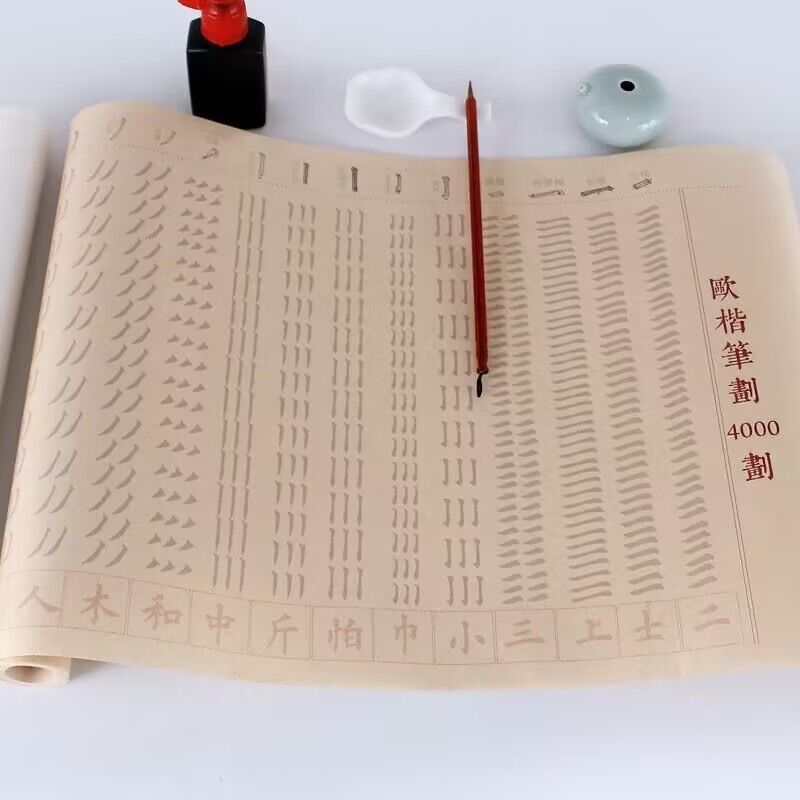 歐楷筆劃4000劃
二士上三小巾怕斤中和木人